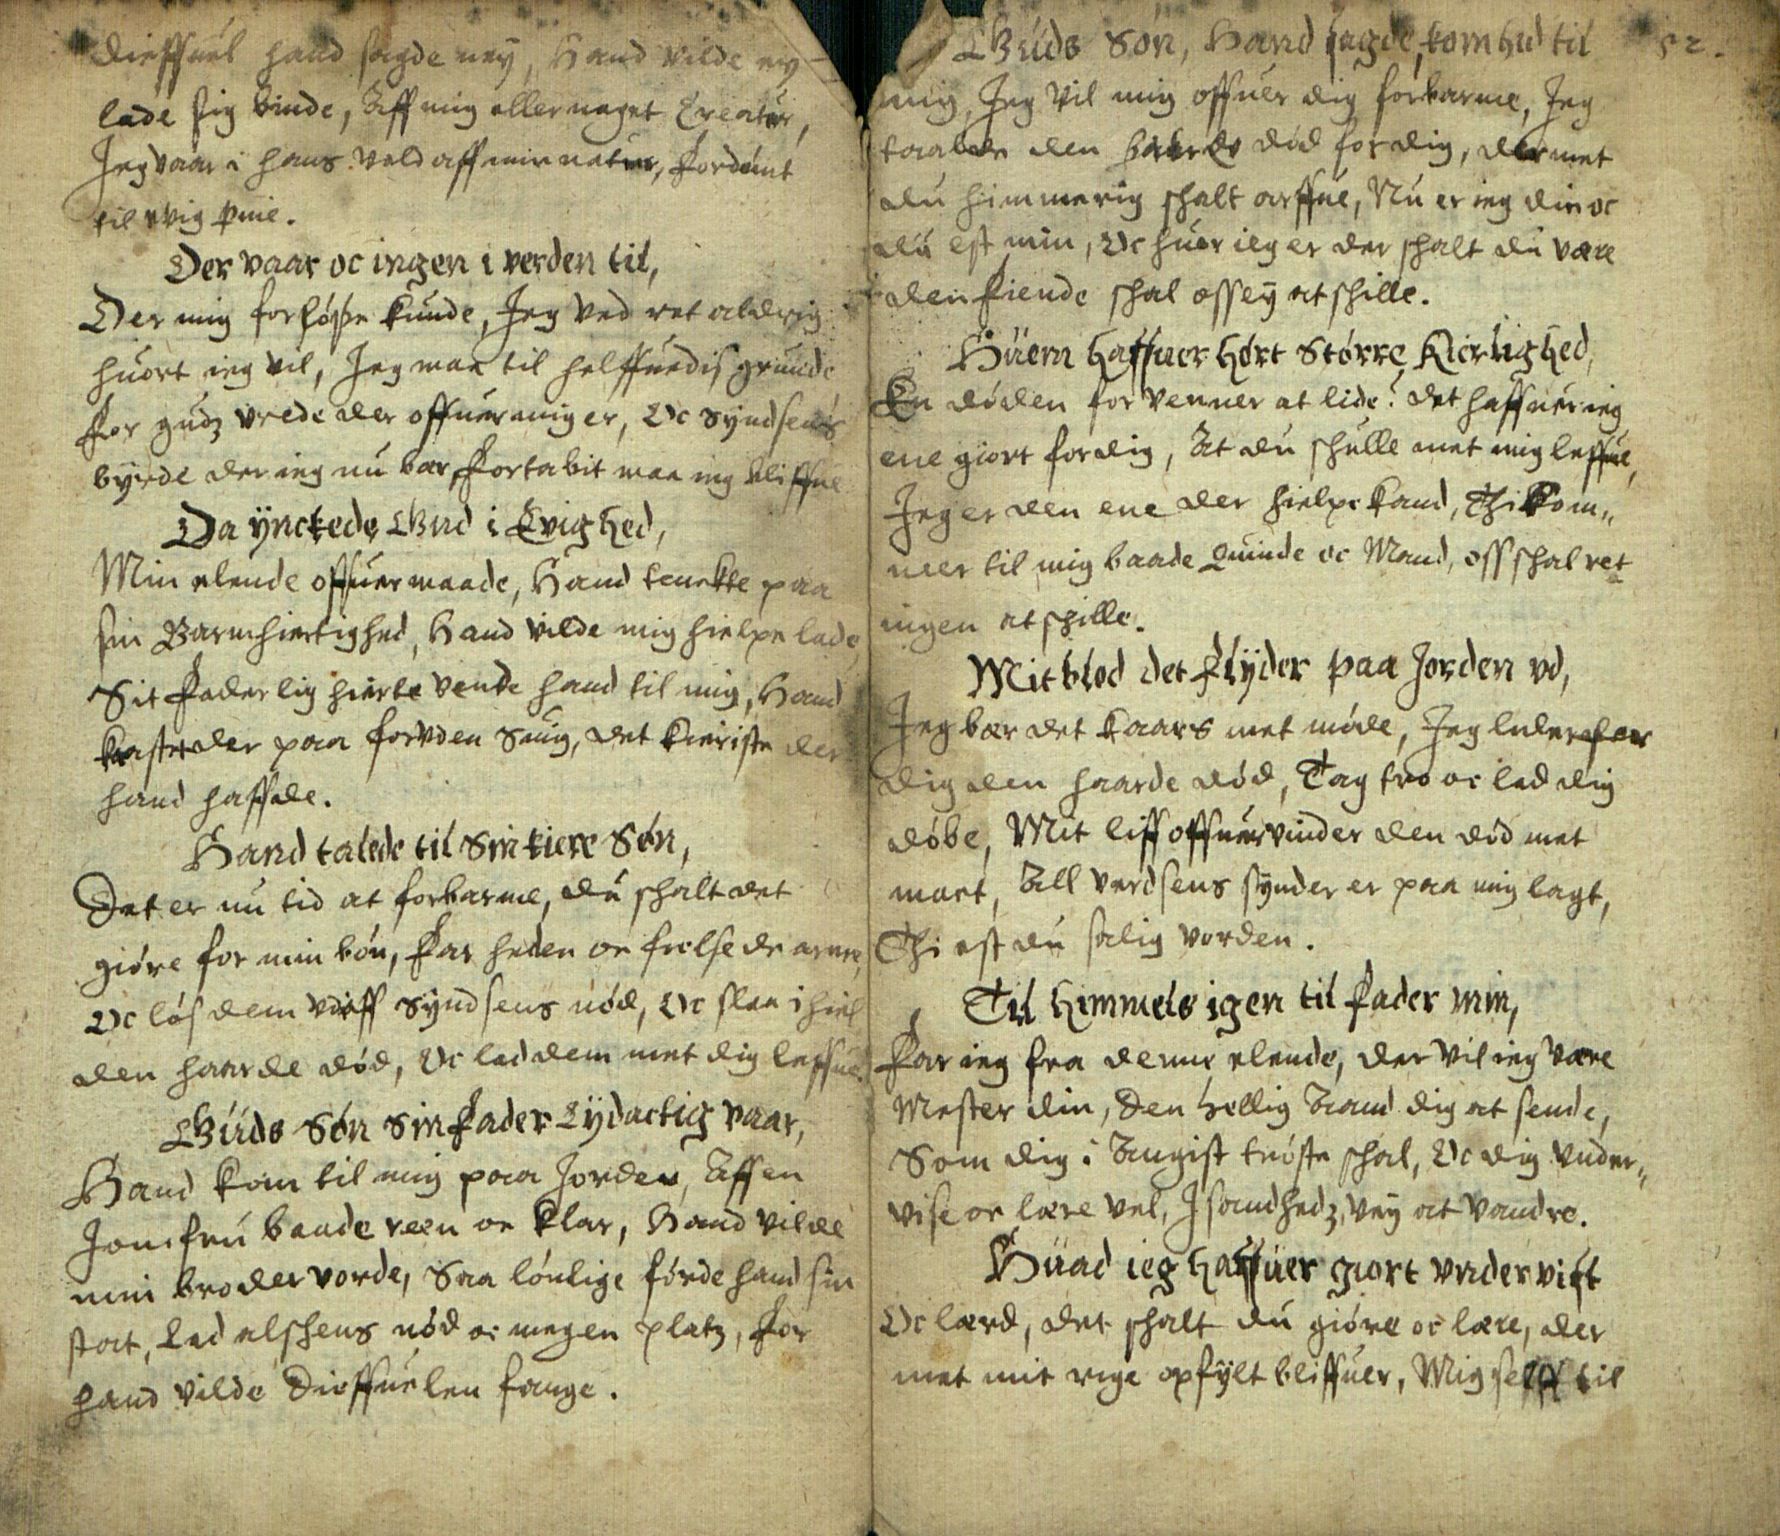 dieffuel hand sagde ney, Hand vilde ey
lade sig binde, Aff mig eller noget Creatur,
Jeg vaar i hans vold aff min natur, fordømt
til evig pine.
Der vaar oc ingen i verden til,
Der mig forløse kunde, Jeg ved ret aldrig
huort ieg vil, Jeg maa til helffuedis grunde
for gudz vrede der offuer mig er, Oc Syndsens
byrde der ieg nu bær, fortabit maa ieg bliffue
Da ÿnckede Gud i Evighed,
Min elende offuer maade, Hand tenckte paa
sin Barmhiertighed, Hand vilde mig hielpe lade,
Sit faderlig hierte vende hand til mig, Hand
kaste der paa foruden Suig, det kieriste der
hand haffde.
Hand talede til Sin kiere Søn,
Det er nu tid at forbarme, du schalt det
giøre for min bøn, far heden oc frelse de arme,
Oc løs dem vdaff Syndsens nød, Oc slaa i hiel
den haarde død, Oc lad dem met dig leffue.
Guds Søn Sin fader Lÿdactig vaar,
Hand kom til mig paa Jorden, Aff en
Jomfru baade reen oc klar, Hand vilde
min broder vorde, Saa lønlige førde hand sin
stat, Led alschens nød oc megen platz, for
hand vilde Dieffuelen fange.
Guds Søn, Hand sagde, kom hid til 52.
mig, Jeg vil mig offuer dig forbarme, Jeg
taalde den død for dig, der met
du himmerig schalt arffue, Nu er ieg din oc
du est min, Oc huor ieg er der schalt du være
den fiende schal oss ey atschille.
Huem haffuer hørt Større Kierlighed,
En døden for venner at lide? det haffuer ieg
ene giort for dig, At du schulle met mig leffue,
Jeg er den ene der hielpe kand, Thi kom„
mer til mig baade Quinde oc Mand, oss schal ret
ingen atschille.
Mit blod det flÿder paa Jorden vd,
Jeg bær det kaars met møde, Jeg lider for
dig den haarde død, Tag tro oc lad dig
døbe, Mit liff offueruinder den død met
mact, All verdsens synder er paa mig lagt,
Thi est du salig vorden.
Til Himmels igen til fader min,
far ieg fra denne elende, der vil ieg være
Mester din, Den hellig Aand dig at sende,
Som dig i Angist trøste schal, Oc dig vnder„
vise oc lære vel, J sandhedz vey at vandre.
Huad ieg haffuer giort vndervist
Oc lærd, det schalt du giøre oc lære, der
met mit rige opfylt bliffuer, Mig selff til